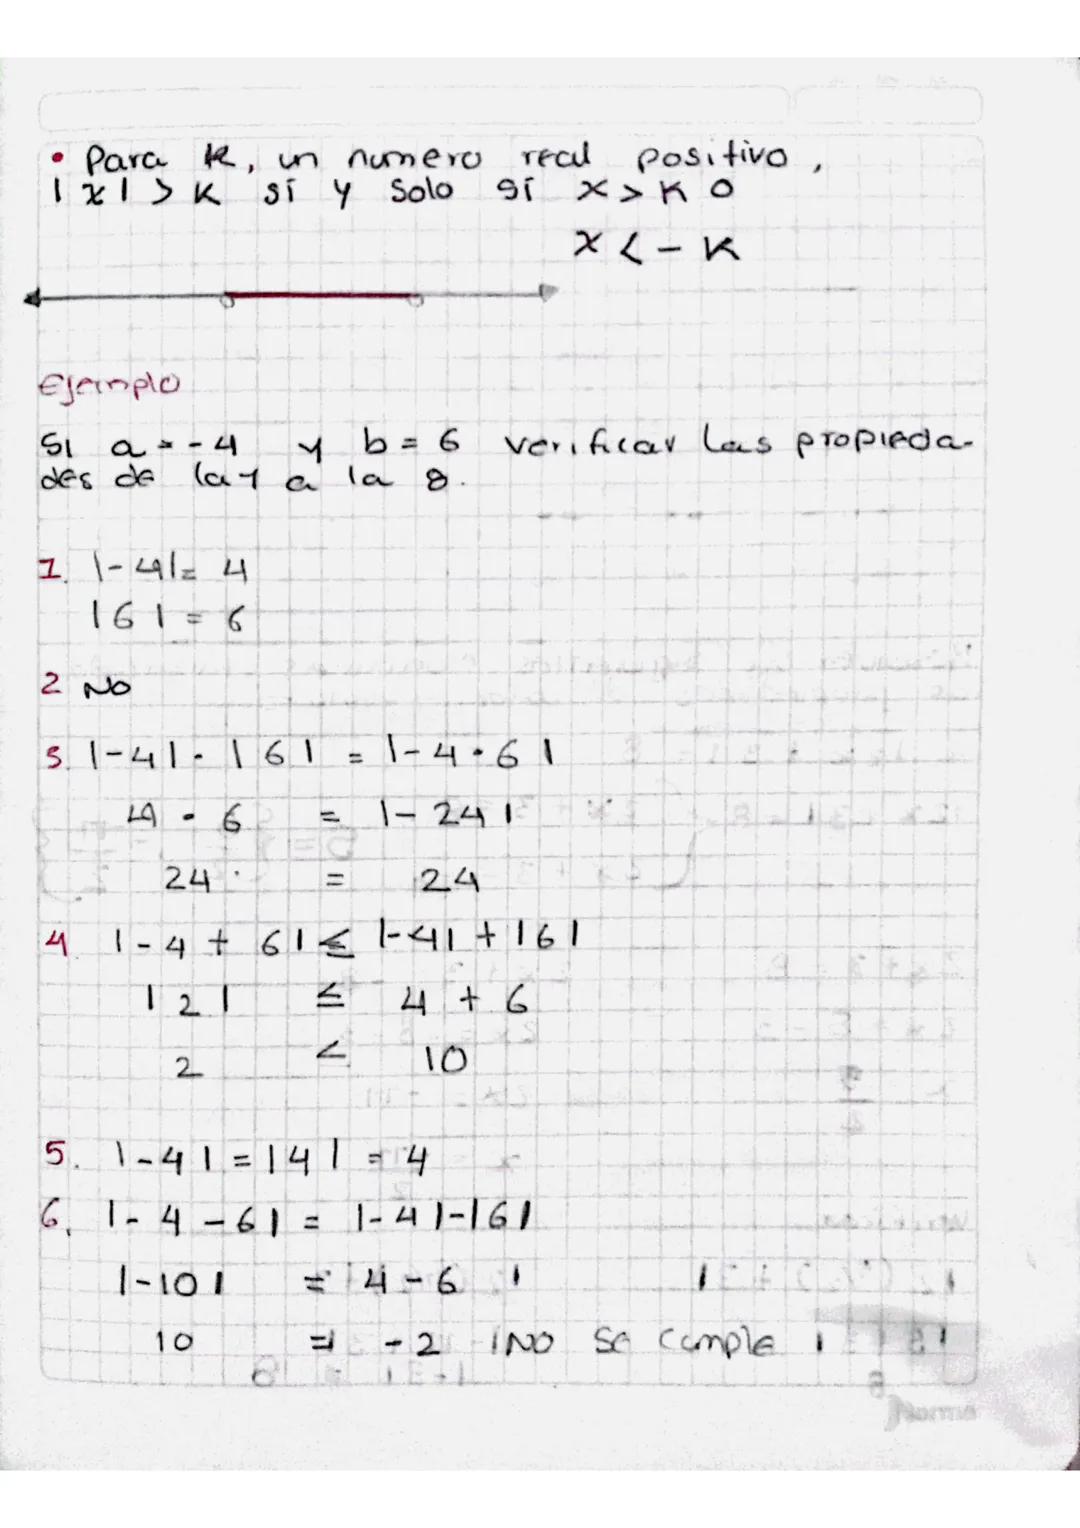 • Para k, un numero real positivo,
|x| > K sí y Solo sí x > K o
x < - K
Ejemplo
Si a = -4 y b = 6 verificar las propieda-
des de la 1 a la 8.
1. |-4| = 4
|6| = 6
2 NO
3. |-4| · |6| = |-4 · 6|
4 · 6 = |-24|
24 = 24
4 |-4 + 6| ≤ |-4| + |6|
|2| ≤ 4 + 6
2 < 10
5. |-4| = |4| = 4
6. |-4 - 6| = |-4| - |6|
|-10| = 4 - 6
10 = -2 ¡NO se cumple!
Norma